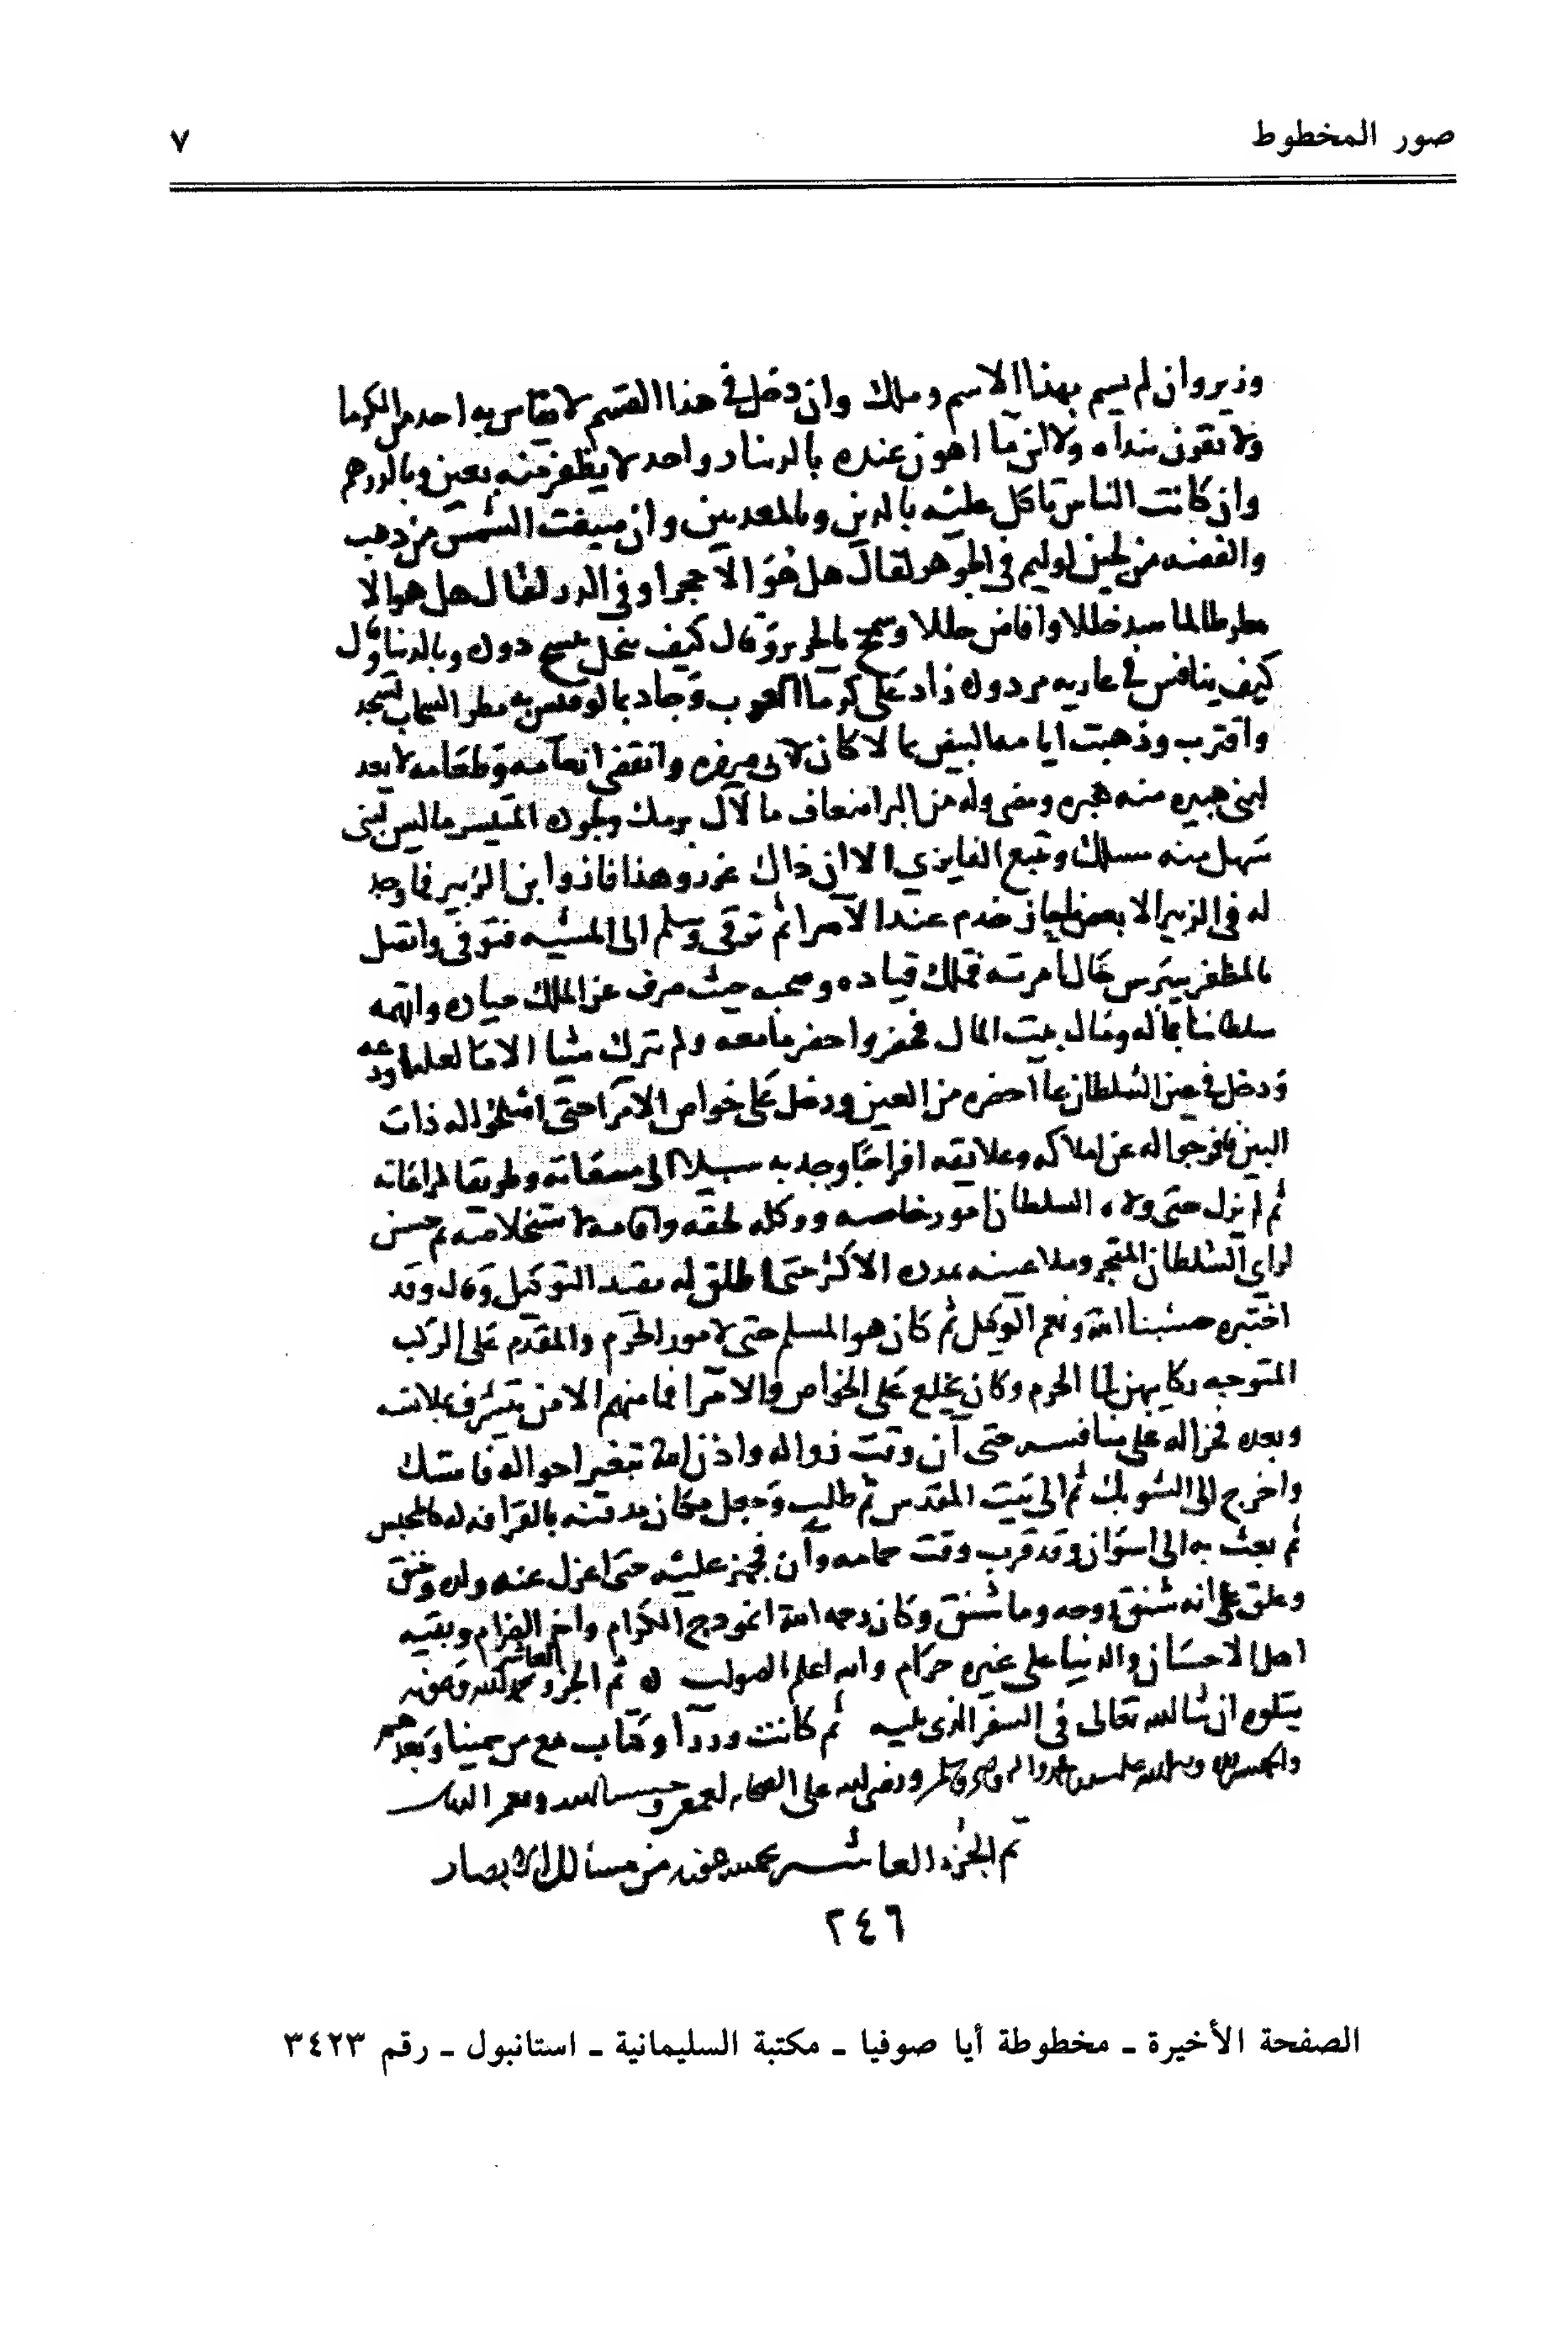 صور المخطوط
٧
وزير وان لم يسم بهذا الاسم وملك وان دخل في هذا القسم لا يقاس به احد من الكرما
ولا يقون بنداه ولا لن ما اهون عنده بالدينار واحد لا يظفر منه بعين وبالدرهم
وان كانت الناس تاكل عليه بالدين وبالمعدنين وان صيغت الشمس من ذهب
والفضه من لجين اوليم في الجوهر لقال هل هو الا حجر او في الدر لقال هل هو الا
مطر طالما خللا وافاض حللا وسمح بالحرير وقال كيف يبخل بنسيج دود وبالدنيا وقال
كيف ينافس في عاريه مردود زاد على كرما العرب وجاد بما لو قيس به مطر السحاب
واقترب وذهبت ايامه البيض بما لا كان لابي صفره وانقضى انعامه وطعامه لا يعد
لبني هبيره منه هبره ومضى وله من ما لال برمك وبجوده المتيسر ما ليس لبني
سهل منه مسلك وتبع الفايزي الا ان ذاك غرر وهذا فاز وابن الزبير فما وجد
له في الزبير الا بعض ما خدم عند الامرا ثم ترقى وسلم الى المشيه فتوفي واتصل
بالمظفر بيبرس بحال امرته فملك قياده وصحبه حيث صرف عن الملك جياده واتهمه
سلطاننا بماله ومال بيت المال فحضر واحضر ما معه ولم يترك شيا الا ما لعله اودعه
ودخل في عين السلطان بما احضره من العين ودخل على خواص الامرا حتى اصلحوا له ذات
البين فافرجوا له عن املاكه وعلايقه افراجا وجد به سبيلا الى مصافاته وطريقا لمراعاته
ثم لم يزل حتى ولاه السلطان امور خاصه ووكله لحقه واقامه لاستخلاصه ثم حسن
لراي السلطان المتجر وملا عينه بمدده الاكثر حتى اطلق له بقيد التوكيل وقال وقد
اختبره حسبنا الله ونعم الوكيل ثم كان هو المسلم حتى لامور الحرم والمقدم على الركب
المتوجه ركابهن لحما الحرم وكان يخلع على الخواص والامرا فما منهم الا من يتشرف بملابسه
وبعده فخرا له على منافسه حتى آن وقت زواله واذن الله بتغير احواله فامسك
واخرج الى الشوبك ثم الى بيت المقدس ثم طلب وجعل مكان مدفنه بالقرافه له كالمحبس
ثم بعث به الى اسوان وقد قرب وقت حمامه وآن فجهز عليه حتى اعزل عنه ولده وخنق
وعلق على انه شنق روحه وما شنق وكان رحمه الله انموذج الكرام واخر الغرام وبقيه
اهل الاحسان والدنيا على غيره حرام والله اعلم بالصواب تم الجزو العاشر بحمد الله وعونه
يتلوه ان شا الله تعالى في السفر الذي يليه ثم كانت وزرا وكتاب مع من سمينا وبعدهم
والحمد لله وصلى الله على سيدنا محمد واله وصحبه وسلم ورضي الله على الصحابه اجمعين وحسبنا الله ونعم الوكيل
تم الجزء العاشر بحمد الله وعونه من مسالك الابصار
٢٤٦
الصفحة الأخيرة ـ مخطوطة أيا صوفيا ـ مكتبة السليمانية ـ استانبول ـ رقم ٣٤٢٣